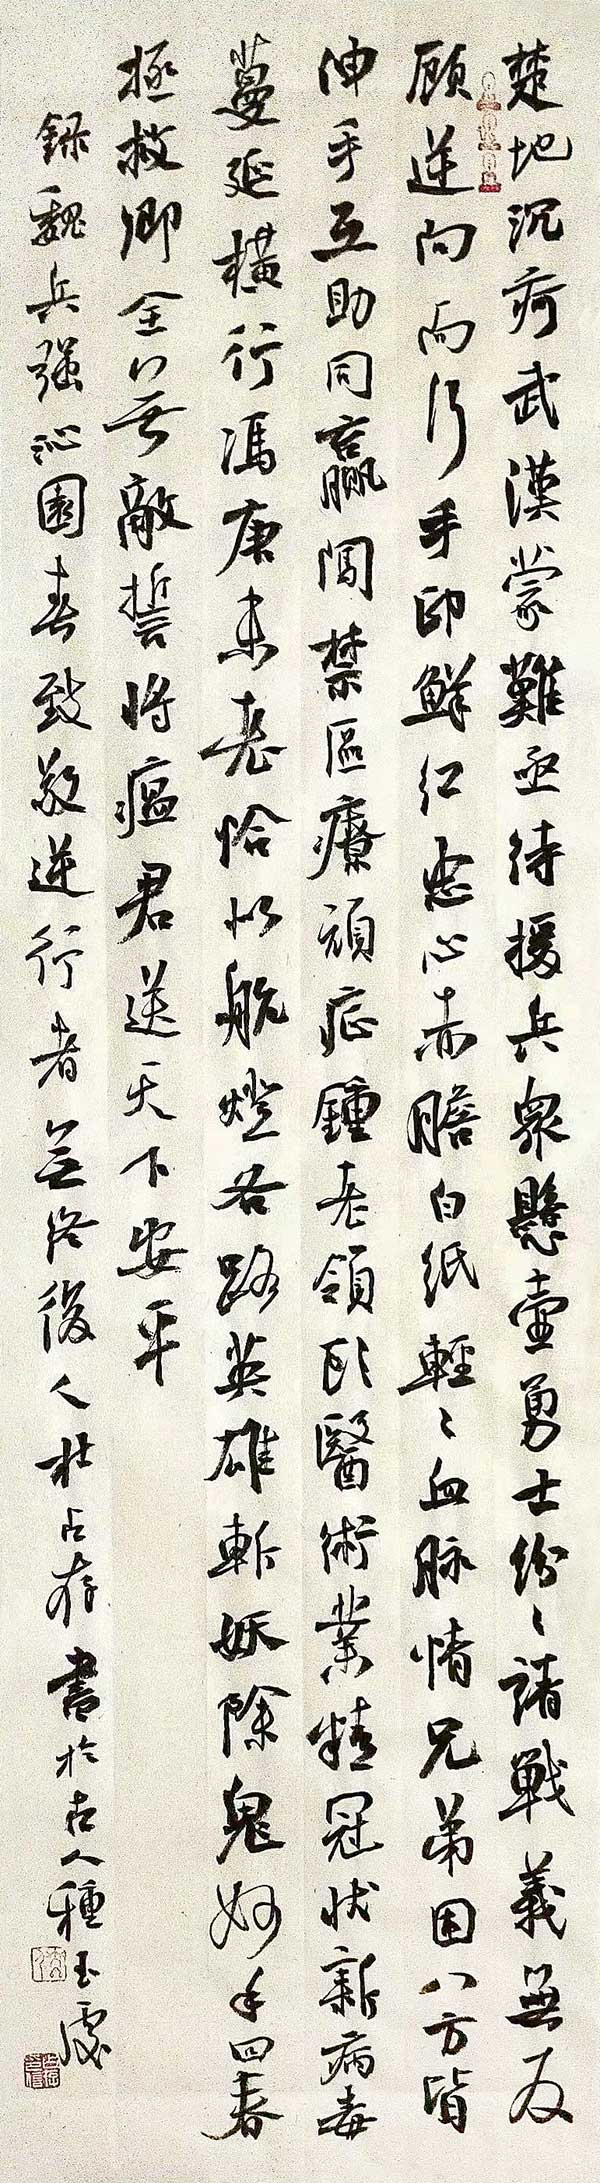 楚地沉疴武漢蒙難亟待援兵眾懸壺勇士紛〻請戰義無反
顾逆向而行手印鮮红忠心赤膽白紙輕〻血脉情兄弟困八方皆
伸手互助同赢闖禁區療頑症鍾老領队醫術業精冠状新病毒
蔓延橫行馮唐未老恰似航燈各路英雄斬妖除鬼妙手回春
拯救卿全以無敵誓將瘟君送天下安平
錄魏兵强沁園春致敬逆行者無終後人杜占存書於古人種玉處